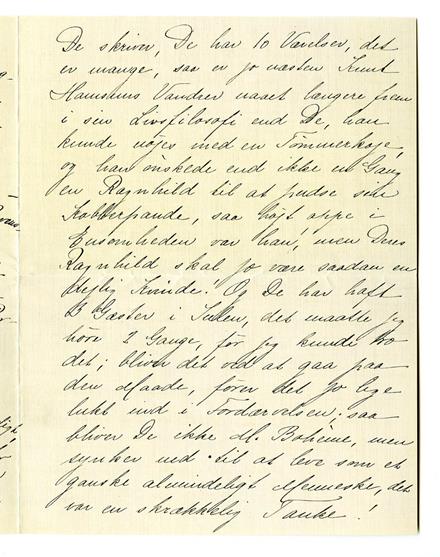 De skriver, De har 10 Værelser, det
er mange, saa er jo næsten Knut
Hamsuns Vandrer naaet længere frem
i sin Livsfilosofi end De, han
kunde nöjes med en Tömmerkoje,
og han önskede end ikke en Gang
en Ragnhild til at pudse sin
Kobberpande, saa højt oppe i
Ensomheden var han, men Deres
Ragnhild skal jo være saadan en
dejlig Kvinde. Og De har haft
13 Gæster i Julen, det maatte jeg
höre 2 Gange, før jeg kunde tro
det; bliver det ved at gaa paa
den Maade, förer det jo lige
lukt ind i Fordærvelsen; saa
bliver De ikke M. Bohème, men
synker ned til at leve som et
ganske almindeligt Menneske, det
var en skrækkelig Tanke!